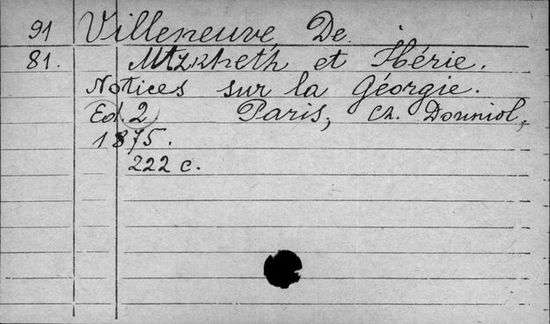 91 Villeneuve, De
81. Mtzkheth et Ibérie.
Notices sur la Géorgie.
Ed. 2) Paris, Ch. Douniol,
1875.
222 c.